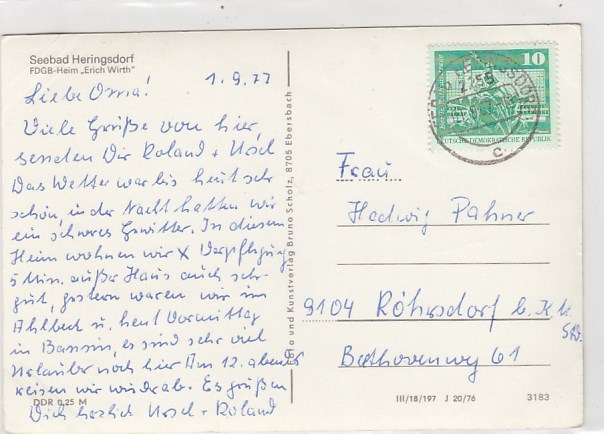 Seebad Heringsdorf
FDGB-Heim „Erich Wirth"
1.9.77
Liebe Oma!
Viele Grüße von hier,
senden Dir Roland + Uschi
Das Wetter war bis heut sehr
schön, in der Nacht hatten wir
ein schweres Gewitter. In diesem
Heim wohnen wir x Verpflegung
5 Min. außer Haus auch sehr
gut, gestern waren wir in
Ahlbeck u. heut Vormittag
in Bansin, es sind sehr viel
Urlauber noch hier Am 12. abends
reisen wir wieder ab. Es grüßen
Dich herzlich Uschi + Roland
DDR 0,25 M
Foto und Kunstverlag Bruno Scholz, 8705 Ebersbach
10
DEUTSCHE DEMOKRATISCHE REPUBLIK
2255
c
Frau
Hedwig Pahner
9104 Röhrsdorf b. K. M.
Beethovenweg 61
III/18/197 J 20/76
3183